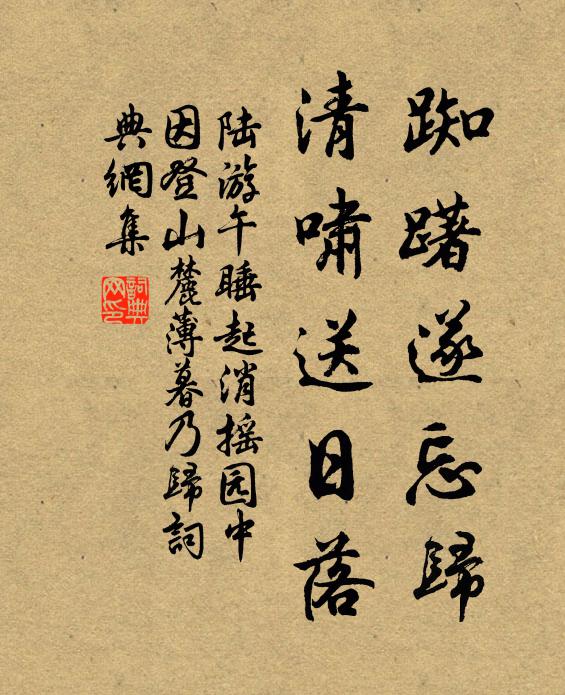 踟躇遂忘歸
清嘯送日落
陆游午睡起消摇园中
因登山麓薄暮乃歸詞
典網集
詞典网印